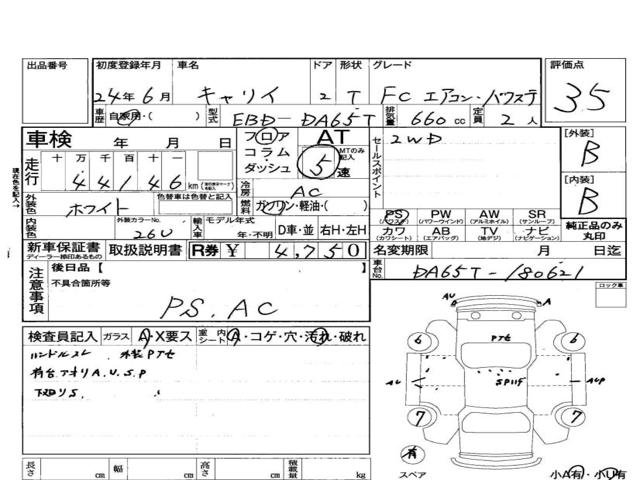 出品番号 初度登録年月 車名 ドア 形状 グレード 評価点
24年6月 キャリイ 2 T FC エアコン・パワステ 3.5
車歴 自家用・( ) 型式 EBD-DA65T 排気量 660cc 定員 2人
車検 年 月 日 フロア AT 2WD [外装]
走行 十万千百十一 コラム・ MTのみ記入 セールスポイント B
44146km ダッシュ 5速
現在色を記入→ 外装色 ホワイト 色替車は色替と記入 冷房 AC [内装]
燃料 ガソリン・軽油・( ) B
PS PW AW SR
(パワステ) (パワーウインド) (アルミホイル) (サンルーフ)
内装色 外装カラーNo. 26U 輸入車 モデル年式 年・不明 D車・並 右H・左H カワ AB TV ナビ 純正品のみ丸印
(カワシート) (エアバッグ) (地デジ) (ナビゲーション)
新車保証書 取扱説明書 R券 ¥ 4,750 名変期限 月 日迄
ディーラー捺印あるもの
注意事項 後日品【 】 車台No. DA65T-180621
不具合箇所等 ロック車
PS.AC
検査員記入 ガラス A・X要ス 室内シート A・コゲ・穴・汚れ・破れ
ハンドルスレ 外装PTセ
荷台アオリA.U.S.P
下廻りS.
AU A
PTセ
6 6
AU SPサ AUP
7 7
有
スペア 小A有・小U有
長さ cm 幅 cm 高さ cm 積載量 kg